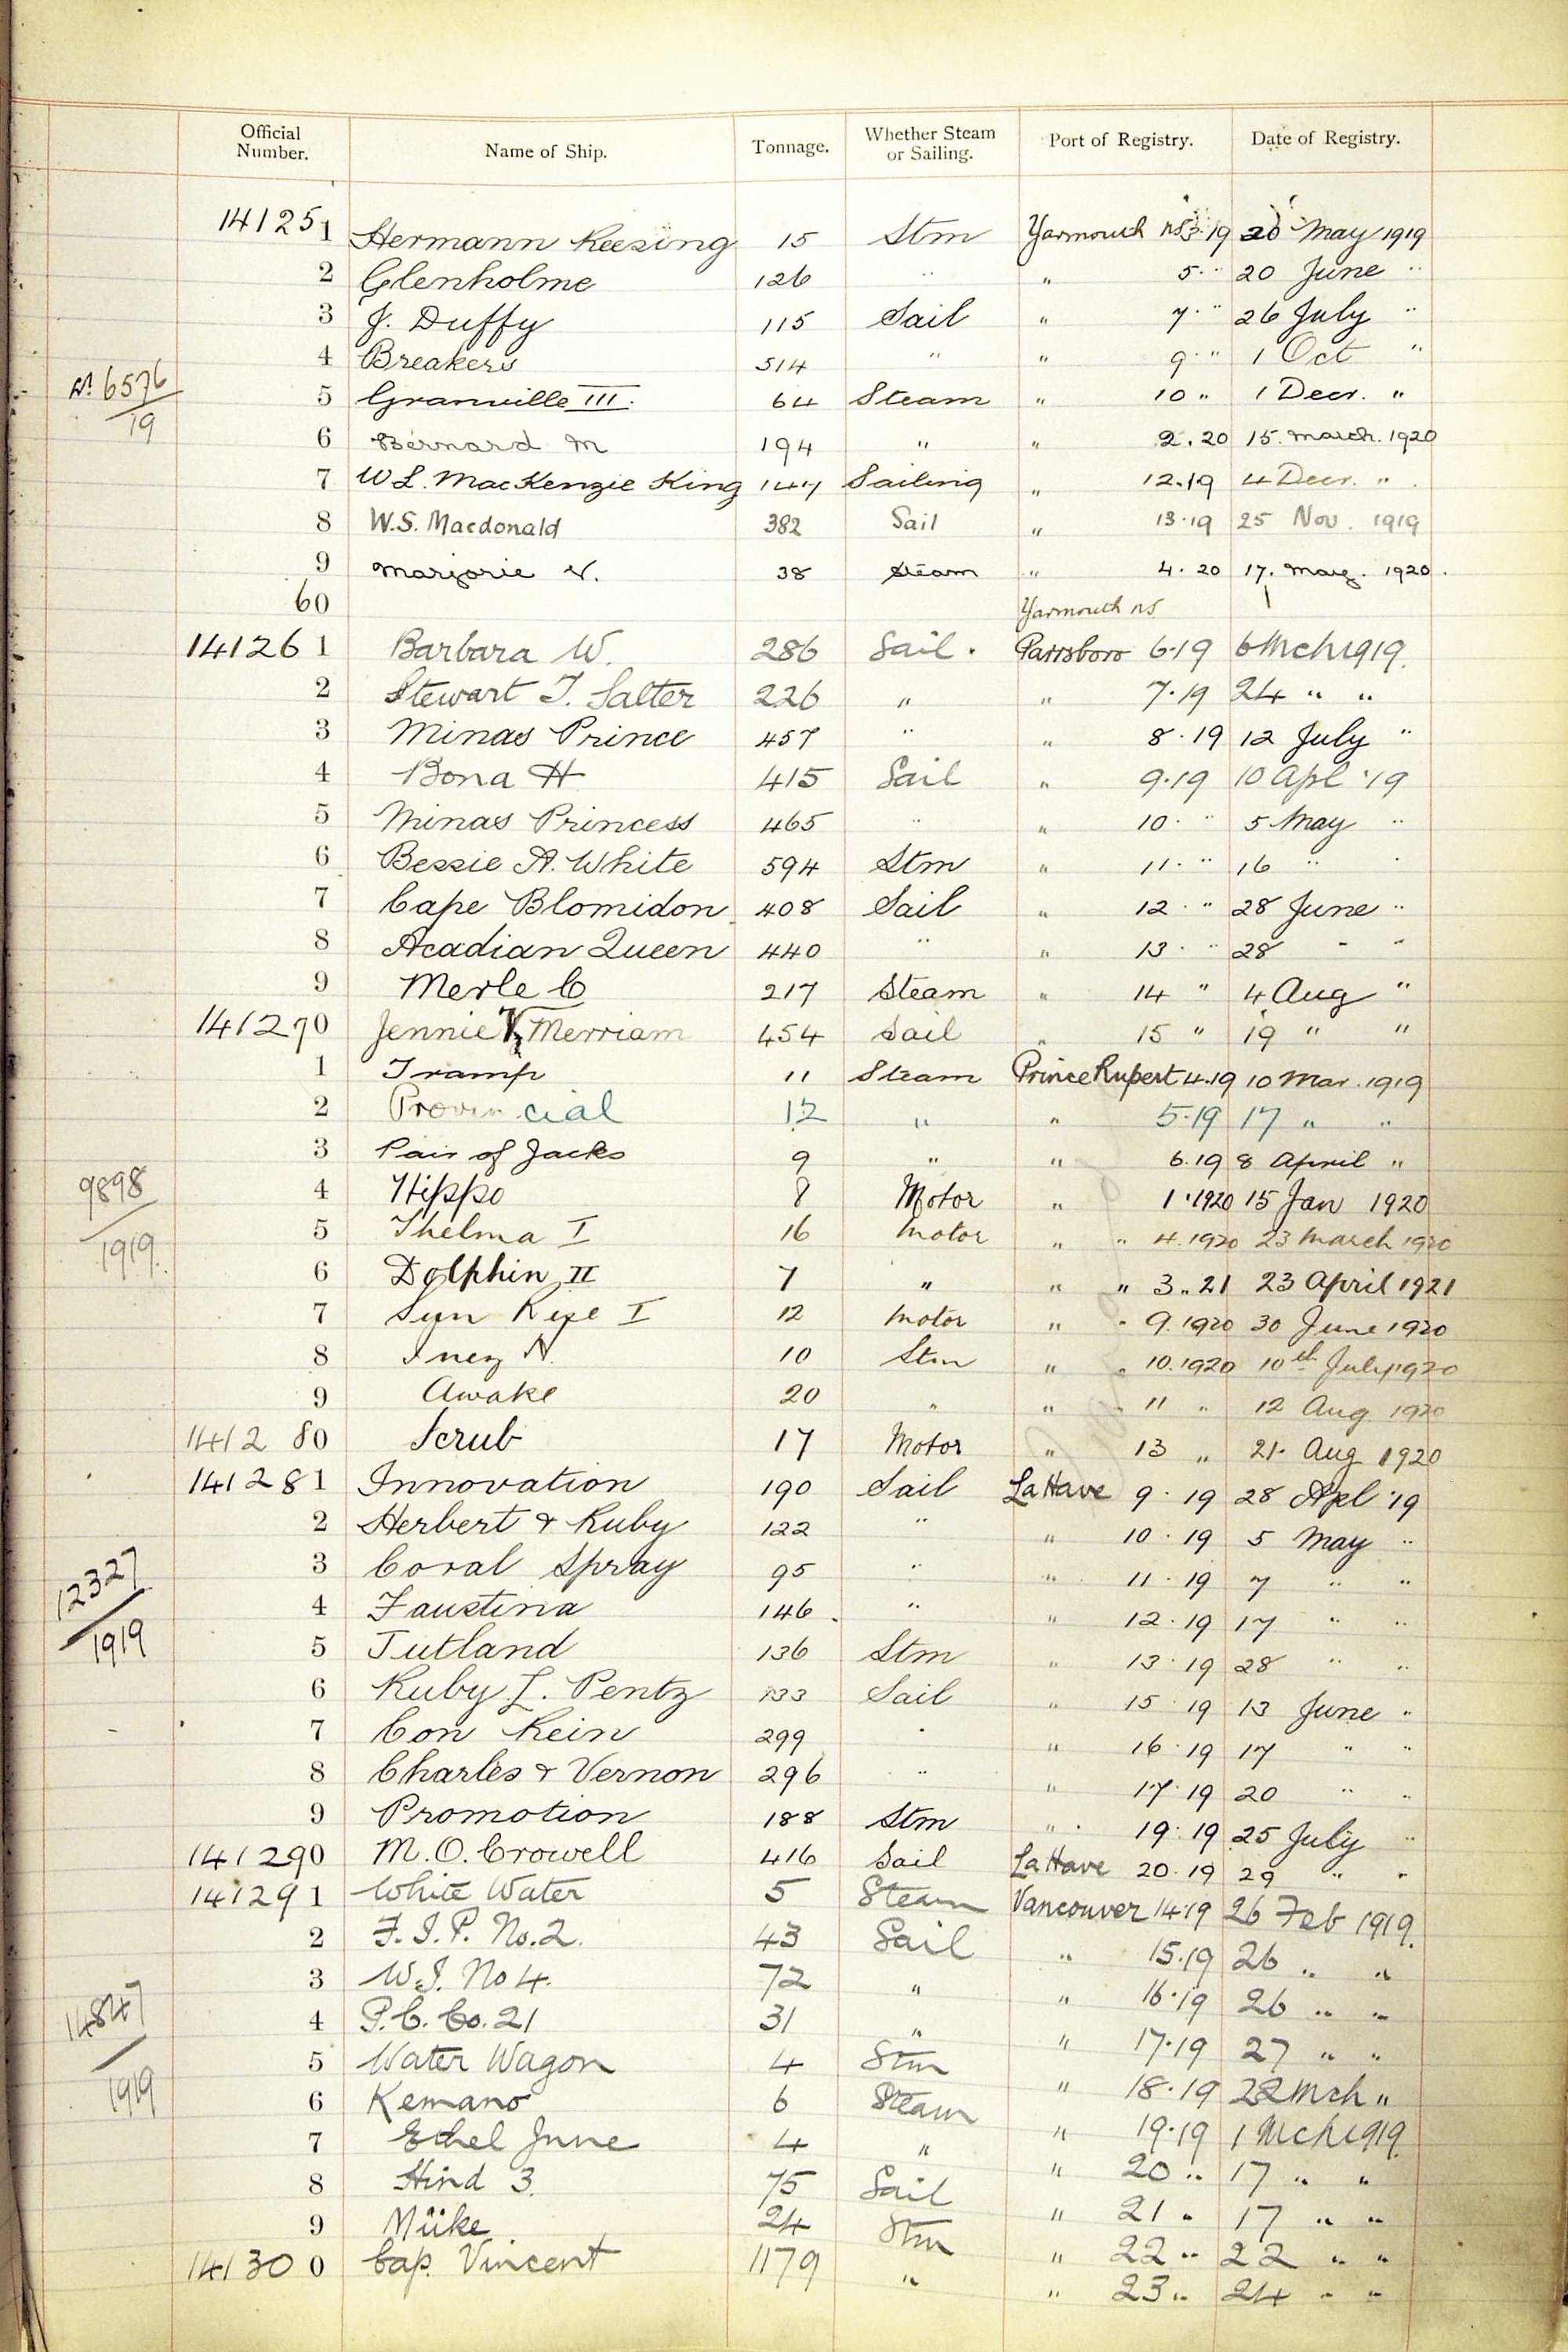 Official Number. Name of Ship. Tonnage. Whether Steam or Sailing. Port of Registry. Date of Registry.
141251 Hermann Keesing 15 Stm Yarmouth NS 3.19 20 May 1919
2 Glenholme 126 " " 5 " 20 June "
3 J. Duffy 115 Sail " 7 " 26 July "
4 Breakers 514 " " 9 " 1 Oct "
6576/19
5 Granville III. 64 Steam " 10 " 1 Decr. "
6 Bernard M 194 " " 2.20 15. March. 1920
7 W L. MacKenzie King 147 Sailing " 12.19 4 Decr. "
8 W.S. Macdonald 382 Sail " 13.19 25 Nov. 1919
9 Marjorie 38 Steam " 4.20 17. 1920.
60 Yarmouth NS
141261 Barbara W. 286 Sail. Parrsboro 6.19 6 Mch 1919.
2 Stewart T. Salter 226 " " 7.19 24 " "
3 Minas Prince 457 " " 8.19 12 July "
4 Bona H 415 Sail " 9.19 10 Apl '19
5 Minas Princess 465 " " 10. " 5 May "
6 Bessie A. White 594 Stm " 11. " 16 " "
7 Cape Blomidon 408 Sail " 12. " 28 June "
8 Acadian Queen 440 " " 13. " 28 " "
9 Merle C 217 Steam " 14 " 4 Aug "
141270 Jennie Merriam 454 Sail " 15 " 19 " "
1 Tramp 11 Steam Prince Rupert 4.19 10 Mar. 1919
2 Provincial 12 " " 5.19 17 " "
3 Pair of Jacks 9 " " 6.19 8 April "
9898/1919
4 Hippo 8 Motor " 1.1920 15 Jan 1920
5 Thelma I 16 Motor " " 4.1920 23 March 1920
6 Dolphin II 7 " " " 3..21 23 April 1921
7 Sun Rise I 12 Motor " " 9.1920 30 June 1920
8 Inez N. 10 Stm " " 10.1920 10th July 1920
9 Awake 20 " " " 11 " 12 Aug 1920
141280 Scrub 17 Motor " 13 " 21. Aug 1920
141281 Innovation 190 Sail La Have 9.19 28 Apl '19
2 Herbert & Ruby 122 " " 10.19 5 May "
3 Coral Spray 95 " " 11.19 7 " "
12327/1919
4 Faustina 146 " " 12.19 17 " "
5 Jutland 136 Stm " 13.19 28 " "
6 Ruby L. Pentz 133 Sail " 15.19 13 June "
7 Con Rein 299 " " 16.19 17 " "
8 Charles & Vernon 296 " " 17.19 20 " "
9 Promotion 188 Stm " 19.19 25 July "
141290 M. O. Crowell 416 Sail La Have 20.19 29 " "
141291 White Water 5 Steam Vancouver 14.19 26 Feb 1919.
2 F. I. P. No. 2. 43 Sail " 15.19 26 " "
3 W. I. No 4. 72 " " 16.19 26 " "
14847/1919
4 P. C. Co. 21 31 " " 17.19 27 " "
5 Water Wagon 4 Stm " 18.19 28 Mch "
6 Kemano 6 Steam " 19.19 1 Mch 1919.
7 Ethel June 4 " " 20 " 17 " "
8 Hind 3. 75 Sail " 21 " 17 " "
9 Müke 24 Stm " 22 " 22 " "
141300 Cap. Vincent 1179 " " 23 " 24 " "